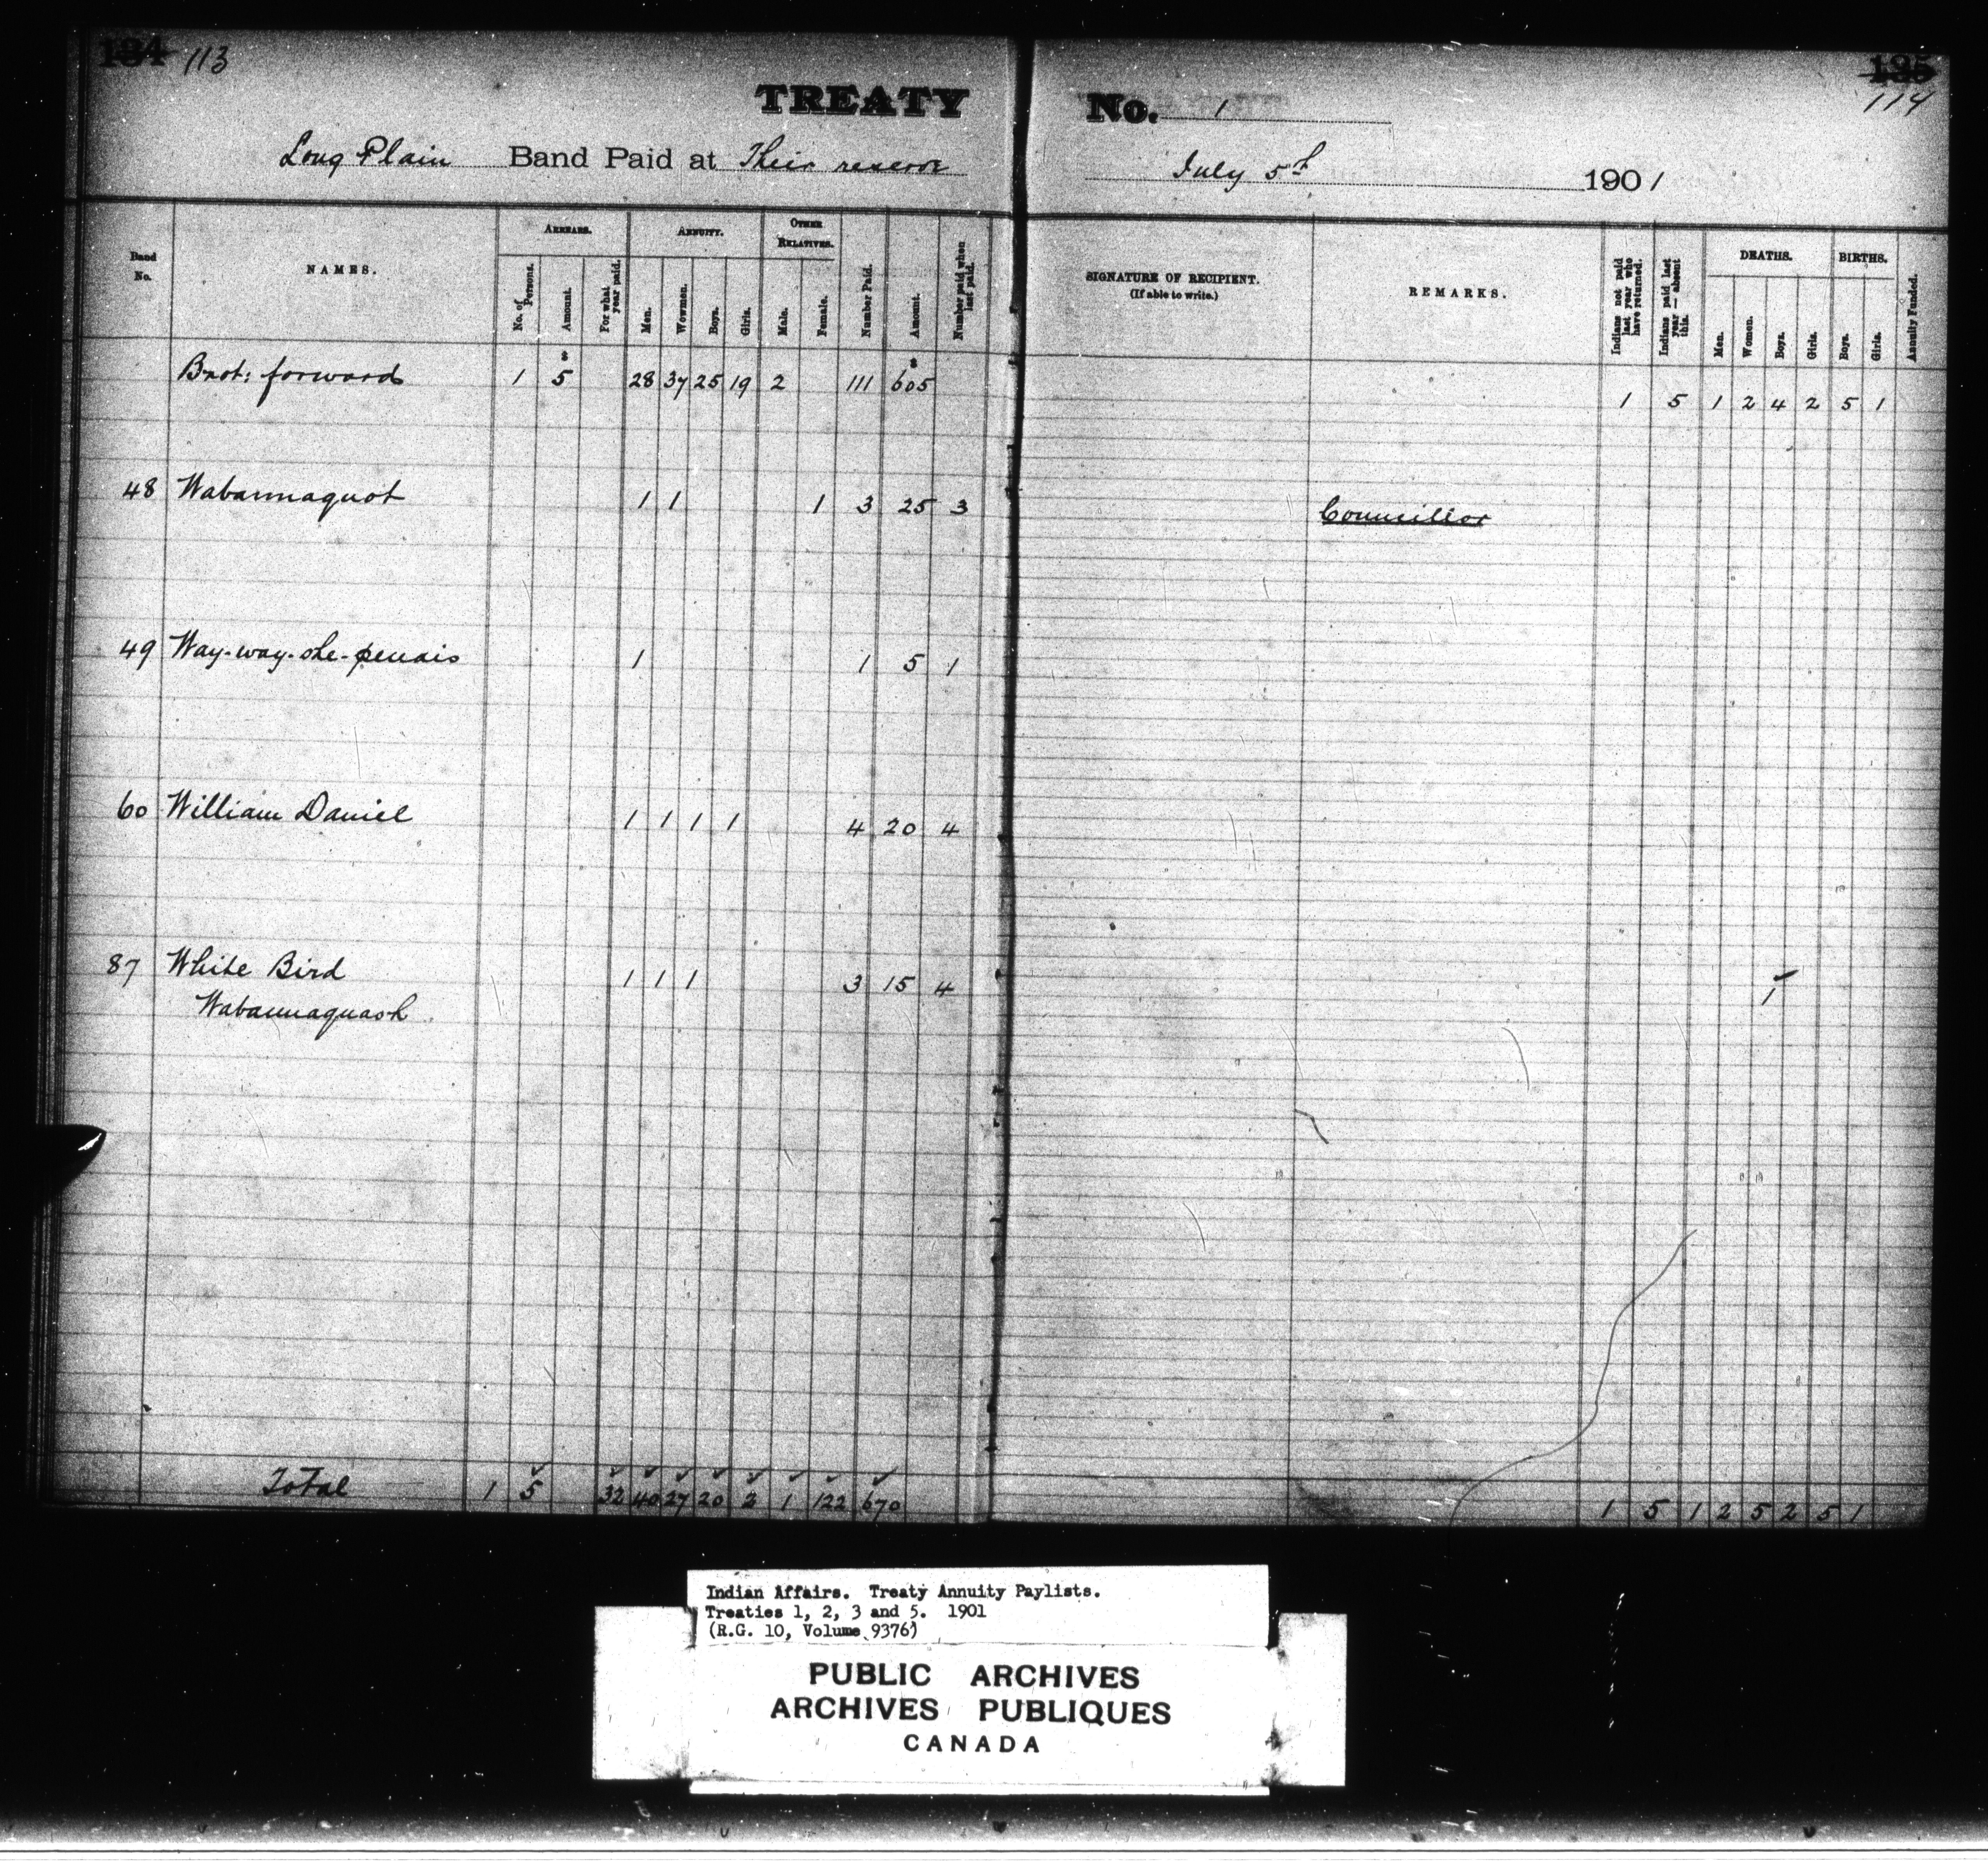 134 113
TREATY No. 1
135
114
Long Plain Band Paid at Their reserve July 5th 1901
Band No.
NAMES.
ARREARS.
No. of Persons.
Amount.
For what year paid.
ANNUITY.
Men.
Wowmen.
Boys.
Girls.
OTHER RELATIVES.
Male.
Female.
Number Paid.
Amount.
Number paid when last paid.
SIGNATURE OF RECIPIENT.
(If able to write.)
REMARKS.
Indians not paid last year who have returned.
Indians paid last year — absent this.
DEATHS.
Men.
Women.
Boys.
Girls.
BIRTHS.
Boys.
Girls.
Annuity Funded.
Brot: forward 1 $5 28 37 25 19 2 111 $605 1 5 1 2 4 2 5 1
48 Wabannaquot 1 1 1 3 25 3 Councillor
49 Way-way-she-penais 1 1 5 1
60 William Daniel 1 1 1 1 4 20 4
87 White Bird 1 1 1 3 15 4 1
Wabannaquash
Total 1 5 32 40 27 20 2 1 122 670 1 5 1 2 5 2 5 1
Indian Affairs. Treaty Annuity Paylists.
Treaties 1, 2, 3 and 5. 1901
(R.G. 10, Volume 9376)
PUBLIC ARCHIVES
ARCHIVES PUBLIQUES
CANADA